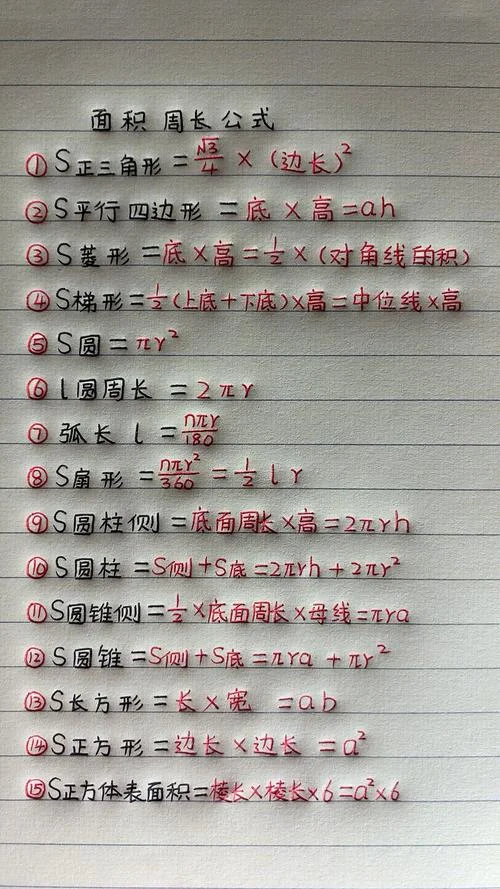 面积 周长公式
① S正三角形 = √3/4 × (边长)²
② S平行四边形 = 底 × 高 = ah
③ S菱形 = 底 × 高 = 1/2 × (对角线的积)
④ S梯形 = 1/2 (上底 + 下底) × 高 = 中位线 × 高
⑤ S圆 = πr²
⑥ l圆周长 = 2πr
⑦ 弧长 l = nπr/180
⑧ S扇形 = nπr²/360 = 1/2 l r
⑨ S圆柱侧 = 底面周长 × 高 = 2πrh
⑩ S圆柱 = S侧 + S底 = 2πrh + 2πr²
⑪ S圆锥侧 = 1/2 × 底面周长 × 母线 = πra
⑫ S圆锥 = S侧 + S底 = πra + πr²
⑬ S长方形 = 长 × 宽 = ab
⑭ S正方形 = 边长 × 边长 = a²
⑮ S正方体表面积 = 棱长 × 棱长 × 6 = a² × 6